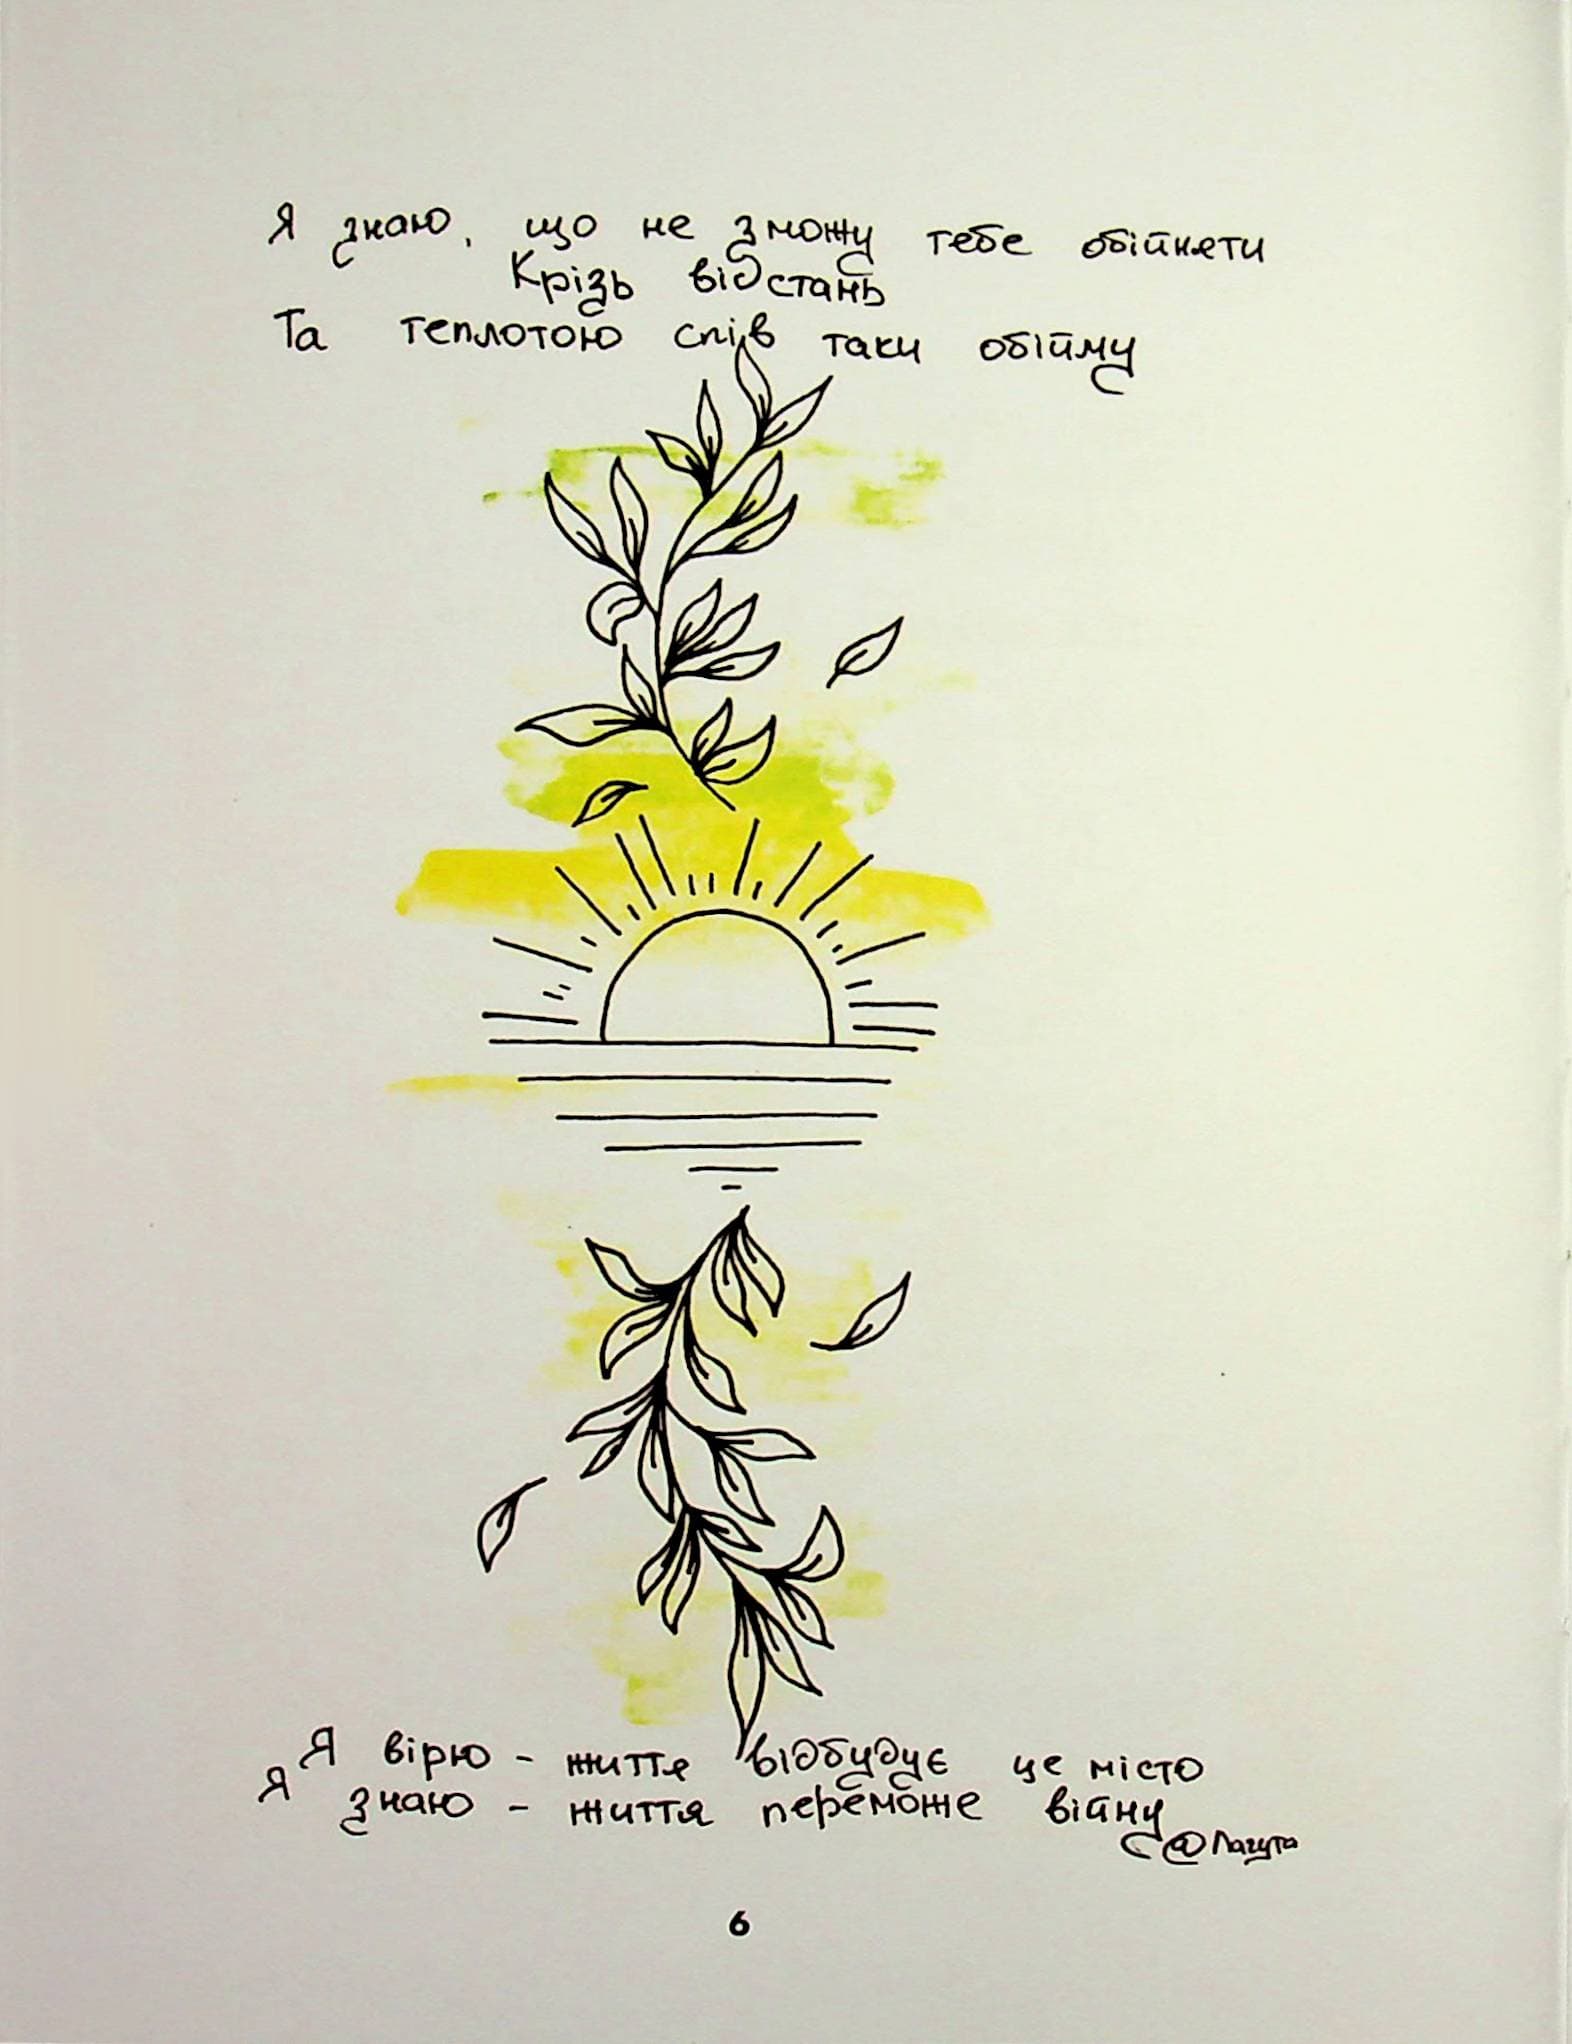 Я знаю, що не зможу тебе обійняти
Крізь відстань
Та теплотою спів таки обійму
Я вірю - життя відбудує це місто
Я знаю - життя переможе війну
@Лагута
6